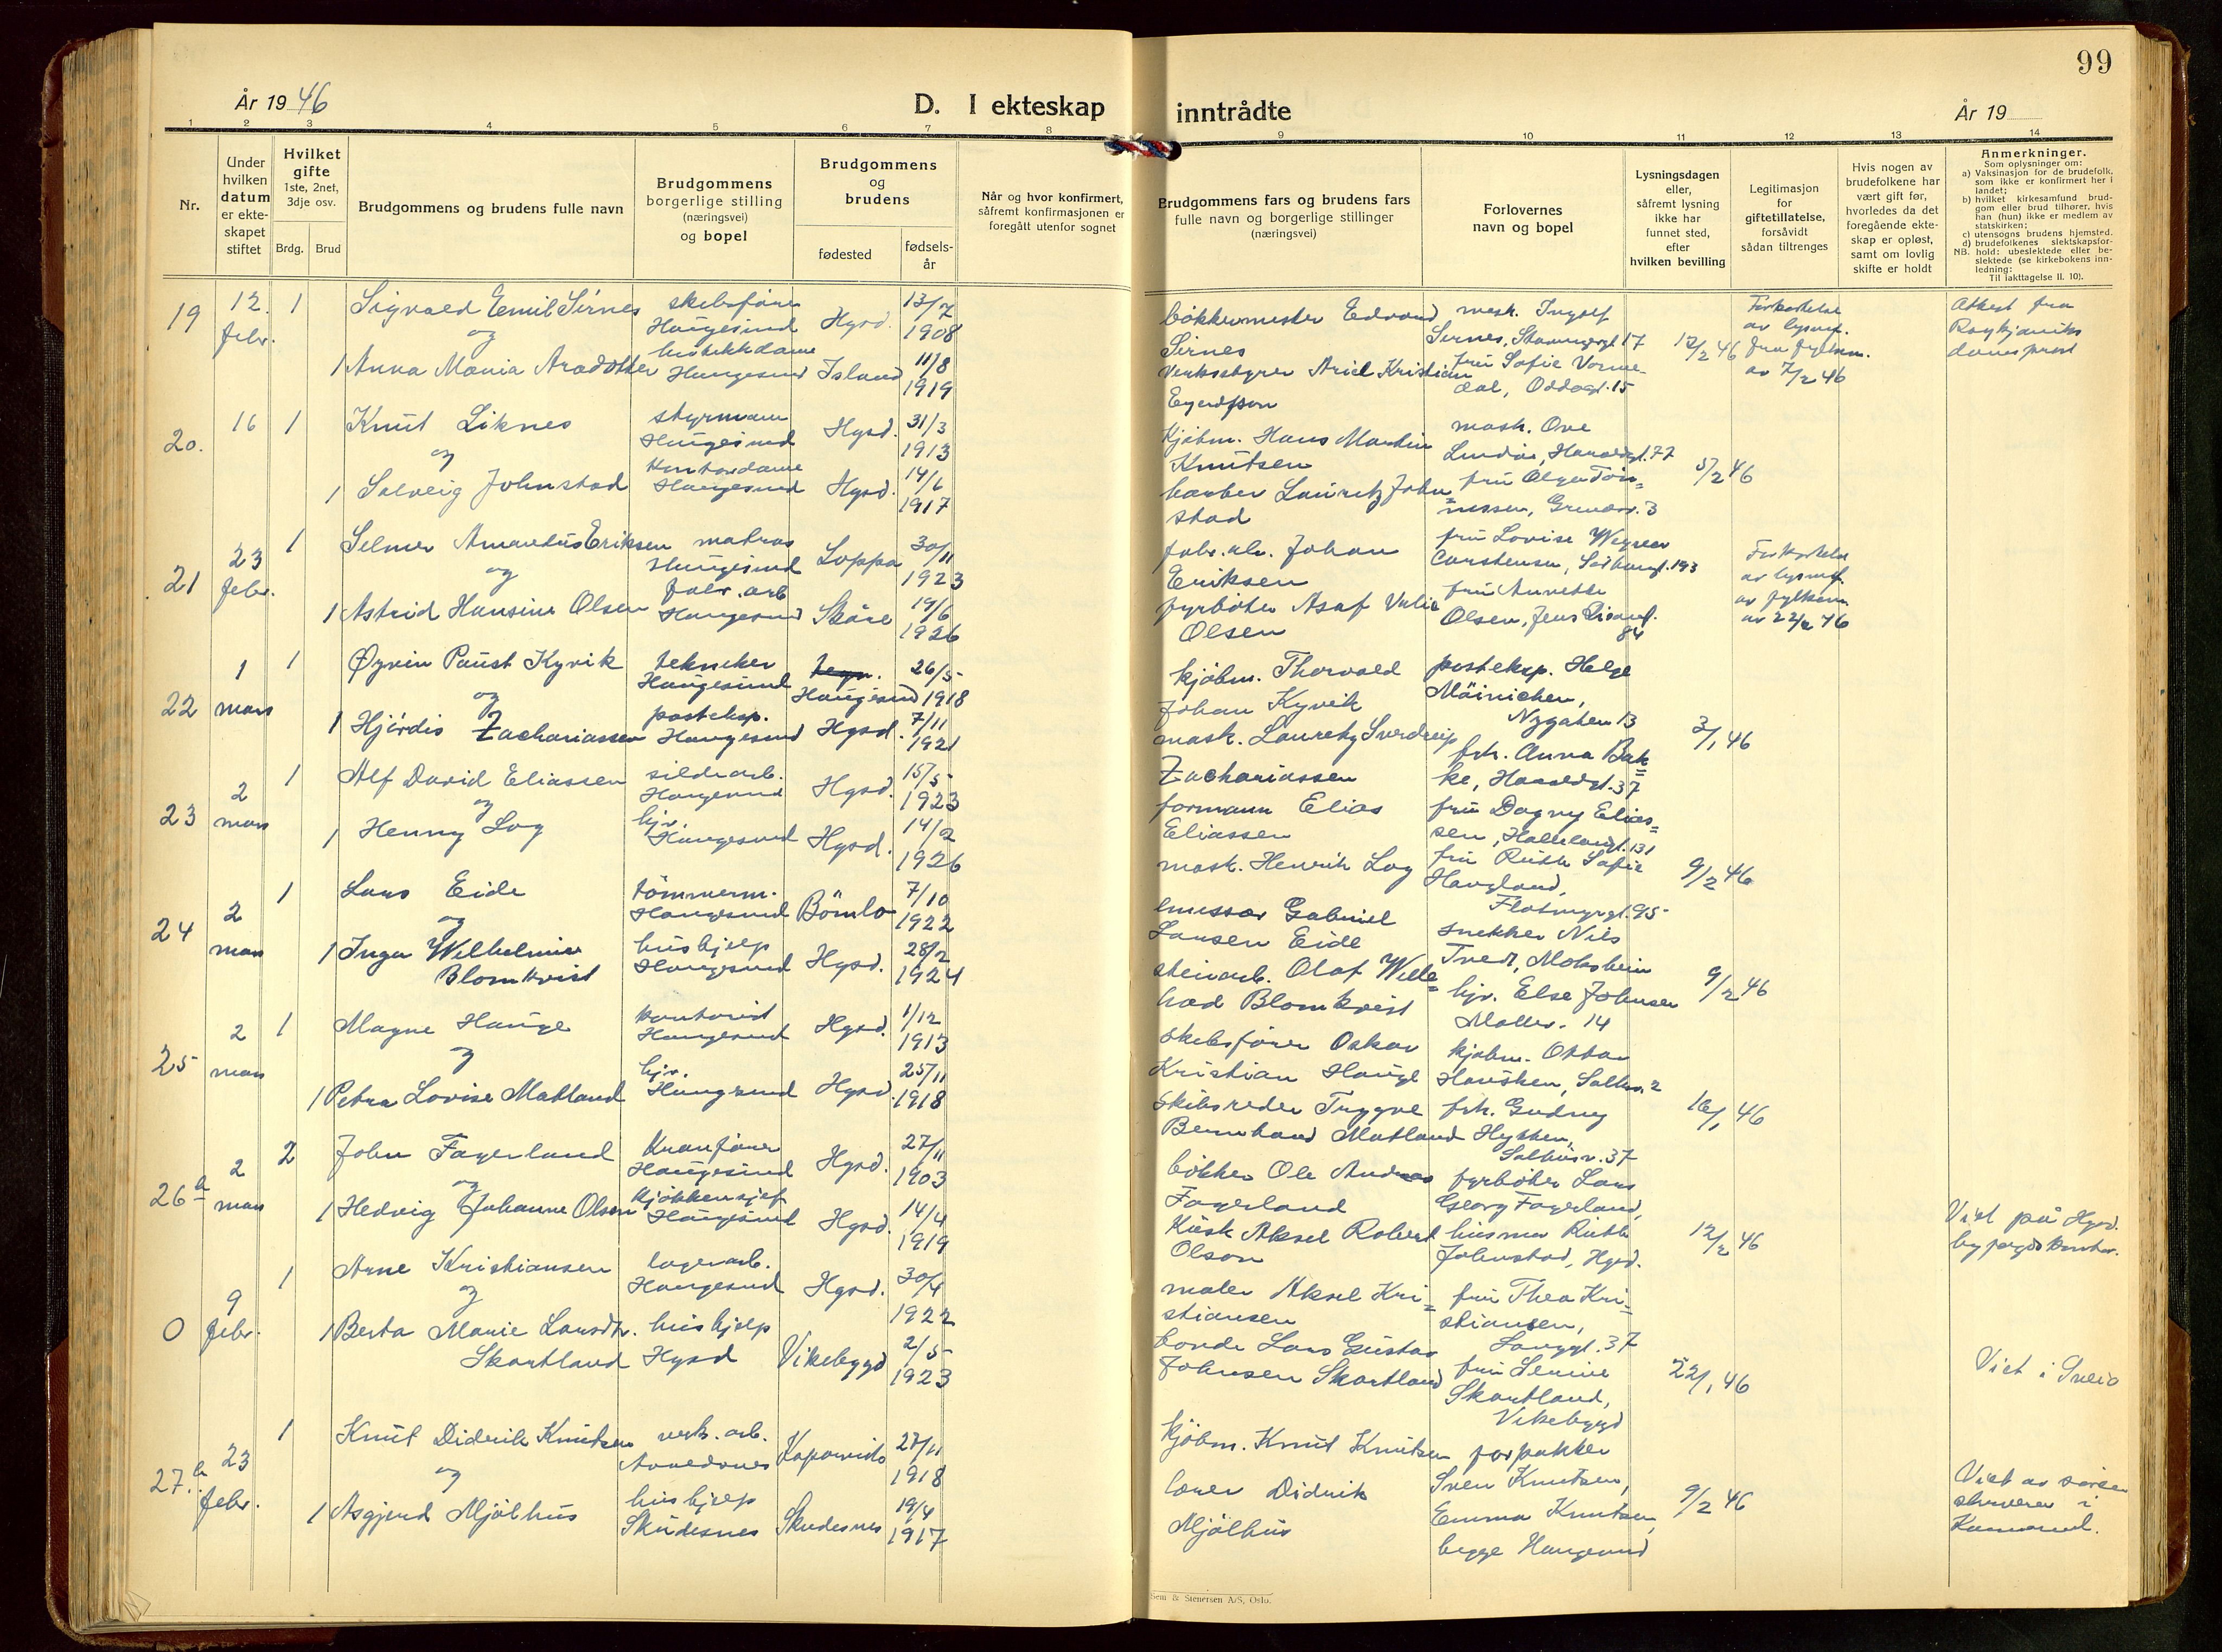 99
År 1946
D. I ekteskap inntrådte
År 19
1 2 3 4 5 6 7 8 9 10 11 12 13 14
Nr.
Under
hvilken
datum
er ekte-
skapet
stiftet
Hvilket
gifte
1ste, 2net,
3dje osv.
Brdg. Brud
Brudgommens og brudens fulle navn
Brudgommens
borgerlige stilling
(næringsvei)
og bopel
Brudgommens
og
brudens
fødested
fødsels-
år
Når og hvor konfirmert,
såfremt konfirmasjonen er
foregått utenfor sognet
Brudgommens fars og brudens fars
fulle navn og borgerlige stillinger
(næringsvei)
Forlovernes
navn og bopel
Lysningsdagen
eller,
såfremt lysning
ikke har
funnet sted,
efter
hvilken bevilling
Legitimasjon
for
giftetillatelse,
forsåvidt
sådan tiltrenges
Hvis nogen av
brudefolkene har
vært gift før,
hvorledes da det
foregående ekte-
skap er opløst,
samt om lovlig
skifte er holdt
Anmerkninger.
Som oplysninger om:
a) Vaksinasjon for de brudefolk,
som ikke er konfirmert her i
landet;
b) hvilket kirkesamfund brud-
gom eller brud tilhører, hvis
han (hun) ikke er medlem av
statskirken;
c) utensogns brudens hjemsted.
d) brudefolkenes slektskapsfor-
NB. hold: ubeslektede eller be-
slektede (se kirkebokens inn-
ledning:
Til iakttagelse II. 10).
19 12. febr. 1 Sigvald Emil Sirnes skibsfører Haugesund Hgsd. 13/7 1908
og
1 Anna Maria Aradotter Haugesund Island 11/8 1919
bøkkermester Edvard Sirnes
Verksstyrer Ariel Kristian
mask. Ingolf
Sirnes, 17
fru Sofie Vorme-
dal, Oddagt. 15
12/2 46
Forkortelse
av lysn.
fra fylkesm.
av 7/2 46
Attest fra
Reykjaviks
domsprost
20. 16 1 Knut Liknes styrmann Haugesund Hgsd. 31/3 1913
og
1 Solveig Johnstad Kontordame Haugesund Hgsd. 14/6 1917
Kjøbm. Hans Martin
Knutsen
barber Lauritz John=
stad
mask. Ove
Lindøe, Haraldsgt. 77
fru Olga Tön=
nessen, 3
5/2 46
21 23 febr. 1 Selmer Amandus Eriksen matros Haugesund Loppa 30/11 1923
og
1 Astrid Hansine Olsen fabr. arb Haugesund Skåre 19/6 1926
fabr.arb. Johan
Eriksen
fyrbøter Asaf
Olsen
fru Lovise
Carstensen, 193
fru Annette
Olsen, 84
Forkortelse
av lysn.
av fylkesm.
av 22/2 46
22 1 mars 1 Øyvin Paust Kyvik tekniker Haugesund Haugesund 26/5 1918
og
1 Hjördis Zachariassen posteksp. Haugesund Hgsd. 7/11 1921
kjøbm. Thorvald
Johan Kyvik
mask. Lauritz Sverdrup
Zachariassen
posteksp. Helge
Mäinichen,
Nygaten 13
frk. Anna Bak=
ke, Haraldsgt. 37
3/1 46
23 2 mars 1 Alf David Eliassen sildearb. Haugesund Hgsd. 15/5 1923
og
1 Henny Log hjv. Haugesund Hgsd. 14/2 1926
formann Elias
Eliassen
mask. Henrik Log
fru Dagny Elias=
sen, 131
fru Ruth Sofie
Haugland,
Flotmyrgt. 95
9/2 46
24 2 mars 1 Lars Eide tömmerm. Haugesund Bömlo 7/10 1922
og
1 Inga Wilhelmine
Blomkvist hushjelp Haugesund Hgsd. 28/2 1924
emissær Gabriel
Larsen Eide
steinarb. Olaf Wille=
had Blomkvist
snekker Nils
Tvedt, Moksheim
hjv. Else Johnsen
14
9/2 46
25 2 mars 1 Magne Hauge kontorist Haugesund Hgsd. 1/12 1913
og
1 Petra Lovise Matland hjv. Haugesund Hgsd. 25/11 1918
Skibsfører Oskar
Kristian Hauge
Skibsreder Trygve
Bernhard Matland
kjøbm. Ottar
2
frk. Gudny
Salhusv. 37
16/1 46
26a 2 mars 2 John Fagerland Kranfører Haugesund Hgsd. 27/11 1903
og
1 Hedvig Johanne Olsen kjøkkensjef Haugesund Hgsd. 14/4 1919
bökker Ole Andreas
Fagerland
Kusk Aksel Robert
Olson
fyrbøter Lars
Georg Fagerland,
husmor Ruth
Johnstad, Hgsd.
12/2 46
Viet på Hgsd.
byfogdkontor.
0 9 febr. 1 Arne Kristiansen lagerarb. Haugesund Hgsd. 30/4 1922
og
1 Berta Marie Larsdtr.
Skartland hushjelp Hgsd Vikebygd 2/5 1923
maler Aksel Kri=
stiansen
bonde Lars Gustav
Johnsen Skartland
fru Thea Kri=
stiansen,
Langgt. 37
fru Lenine
Skartland,
Vikebygd
22/1 46
Viet i Sveio
27.b 23 febr. 1 Knut Didrik Knutsen verk. arb. Kopervik 27/11 1918
og
1 Asgjerd Mjölhus hushjelp Skudesnes Skudesnes 19/4 1917
kjöbm. Knut Knutsen
lærer Didrik
Mjölhus
forpakter
Sven Knutsen,
Emma Knutsen,
begge Haugesund
9/2 46
Viet av soren-
skriveren i
Karmsund.
Sem & Stenersen A/S, Oslo.